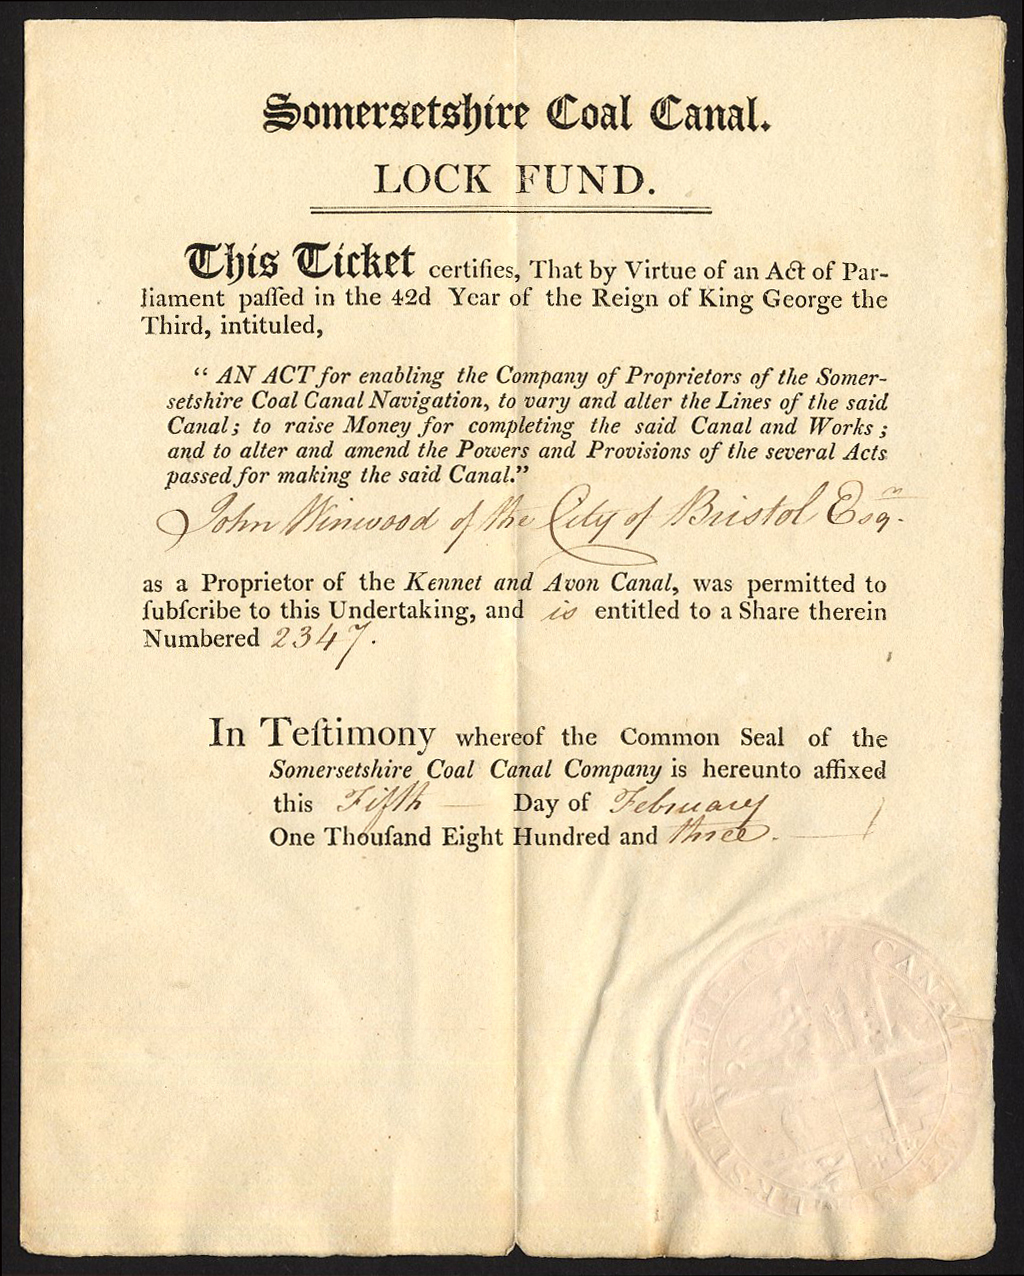 Somersetshire Coal Canal.
LOCK FUND.
This Ticket certifies, That by Virtue of an Act of Par-
liament paſſed in the 42d Year of the Reign of King George the
Third, intituled,
“ AN ACT for enabling the Company of Proprietors of the Somer-
setshire Coal Canal Navigation, to vary and alter the Lines of the said
Canal; to raise Money for completing the said Canal and Works;
and to alter and amend the Powers and Provisions of the several Acts
passed for making the said Canal.”
John Winwood of the City of Bristol Esqr.
as a Proprietor of the Kennet and Avon Canal, was permitted to
ſubſcribe to this Undertaking, and is entitled to a Share therein
Numbered 2347.
In Teſtimony whereof the Common Seal of the
Somersetshire Coal Canal Company is hereunto affixed
this Fifth — Day of February
One Thouſand Eight Hundred and three.
COAL CANAL